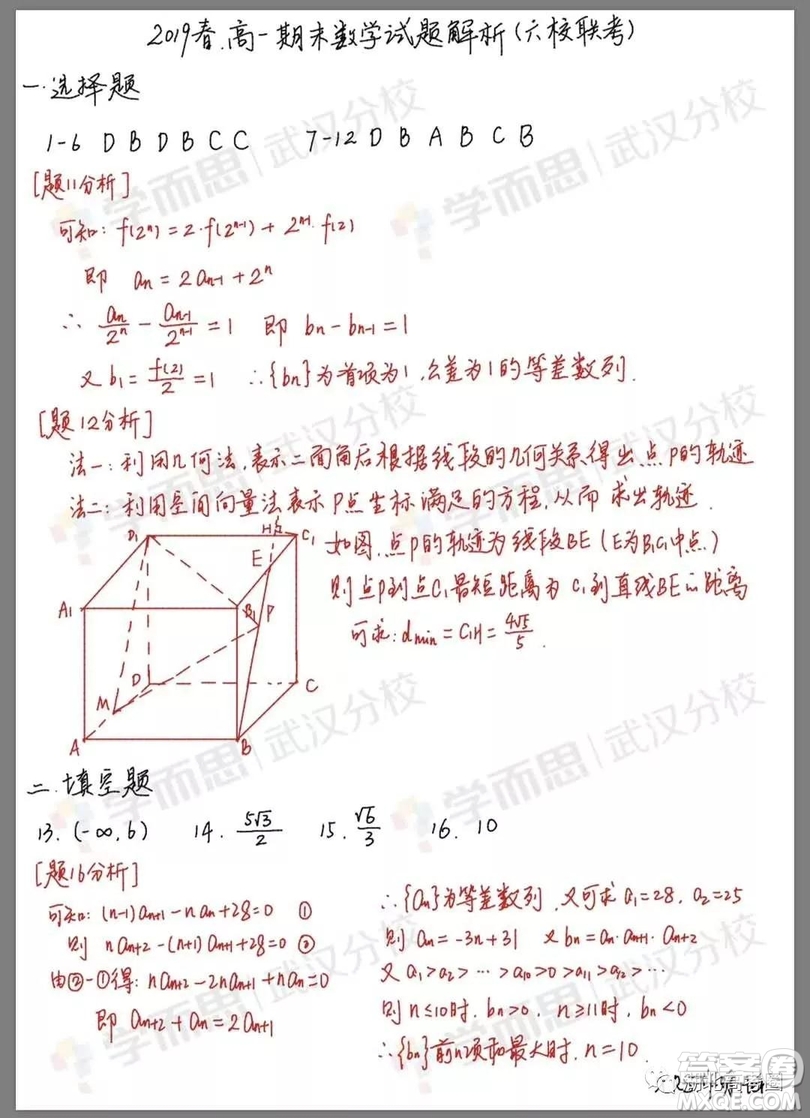 2019春.高一期末数学试题解析(六校联考)
一.选择题
1-6 D B D B C C 7-12 D B A B C B
[题11分析]
可知: f(2ⁿ)=2·f(2ⁿ⁻¹)+2ⁿ⁻¹·f(2)
即 aₙ=2aₙ₋₁+2ⁿ
∴ aₙ/2ⁿ - aₙ₋₁/2ⁿ⁻¹ =1 即 bₙ-bₙ₋₁=1
又 b₁=f(2)/2=1 ∴{bₙ}为首项为1,公差为1的等差数列.
[题12分析]
法一:利用几何法,表示二面角后根据线段的几何关系得出点P的轨迹
法二:利用空间向量法表示P点坐标满足的方程,从而求出轨迹.
如图,点P的轨迹为线段BE(E为B₁C₁中点)
则点P到点C₁最短距离为C₁到直线BE的距离
可求: dmin=C₁H=4√5/5.
D₁ H C₁
E
A₁ B₁ P
D C
M
A B
二.填空题
13. (-∞,6) 14. 5√3/2 15. √6/3 16. 10
[题16分析]
可知: (n-1)aₙ₊₁-naₙ+28=0 ①
则 naₙ₊₂-(n+1)aₙ₊₁+28=0 ②
由②-①得: naₙ₊₂-2naₙ₊₁+naₙ=0
即 aₙ₊₂+aₙ=2aₙ₊₁
∴{aₙ}为等差数列,又可求 a₁=28, a₂=25
则 aₙ=-3n+31 又 bₙ=aₙ·aₙ₊₁·aₙ₊₂
又 a₁>a₂>⋯>a₁₀>0>a₁₁>a₁₂>⋯
则 n≤10时, bₙ>0, n≥11时, bₙ<0
∴{bₙ}前n项和最大时, n=10.
学而思|武汉分校
学而思|武汉分校
学而思|武汉分校
学而思|武汉分校
学而思|武汉分校
学而思|武汉分校
湖北高考圈
答案圈
MXQE.COM